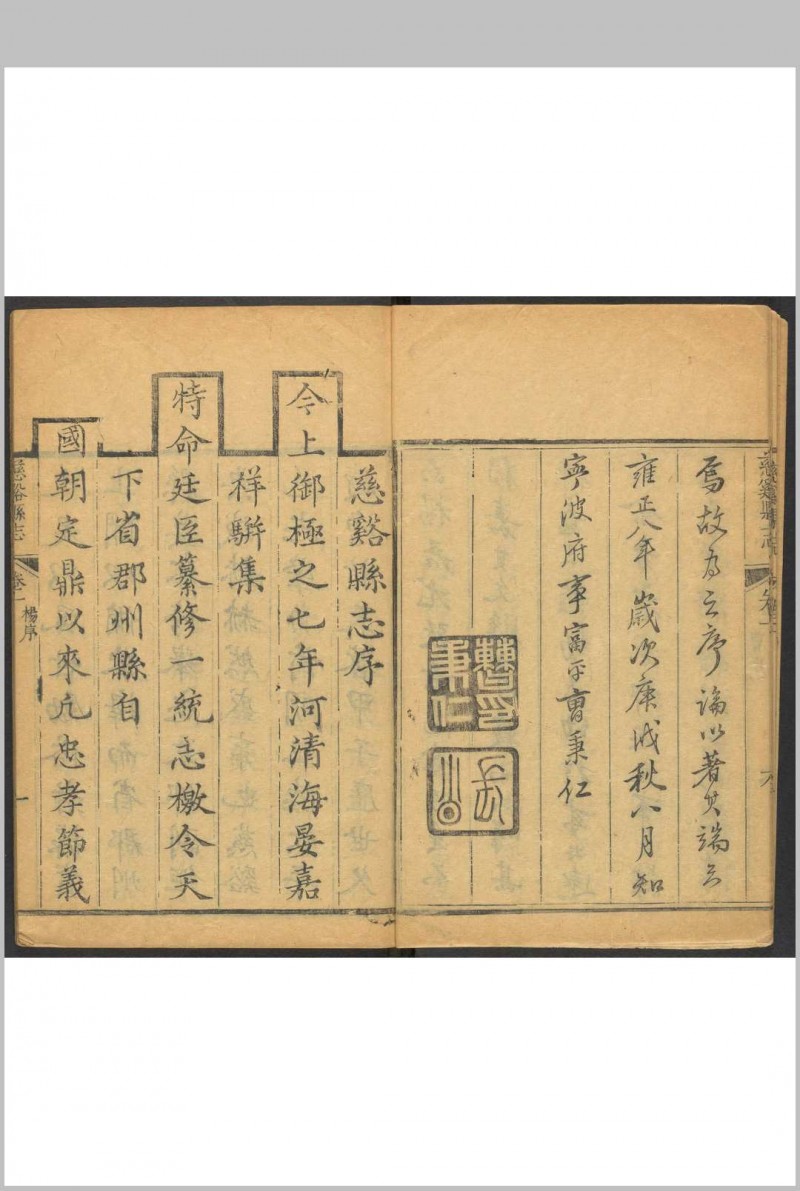 焉故為之序論以著其端云
雍正八年歲次庚戌秋八月知
寧波府事富平曹秉仁
曹印秉仁
長公
慈谿縣志序
今上御極之七年河清海晏嘉
祥駢集
特命廷臣纂修一統志檄令天
下省郡州縣自
國朝定鼎以來凡忠孝節義
慈谿縣志
卷一
楊序
一